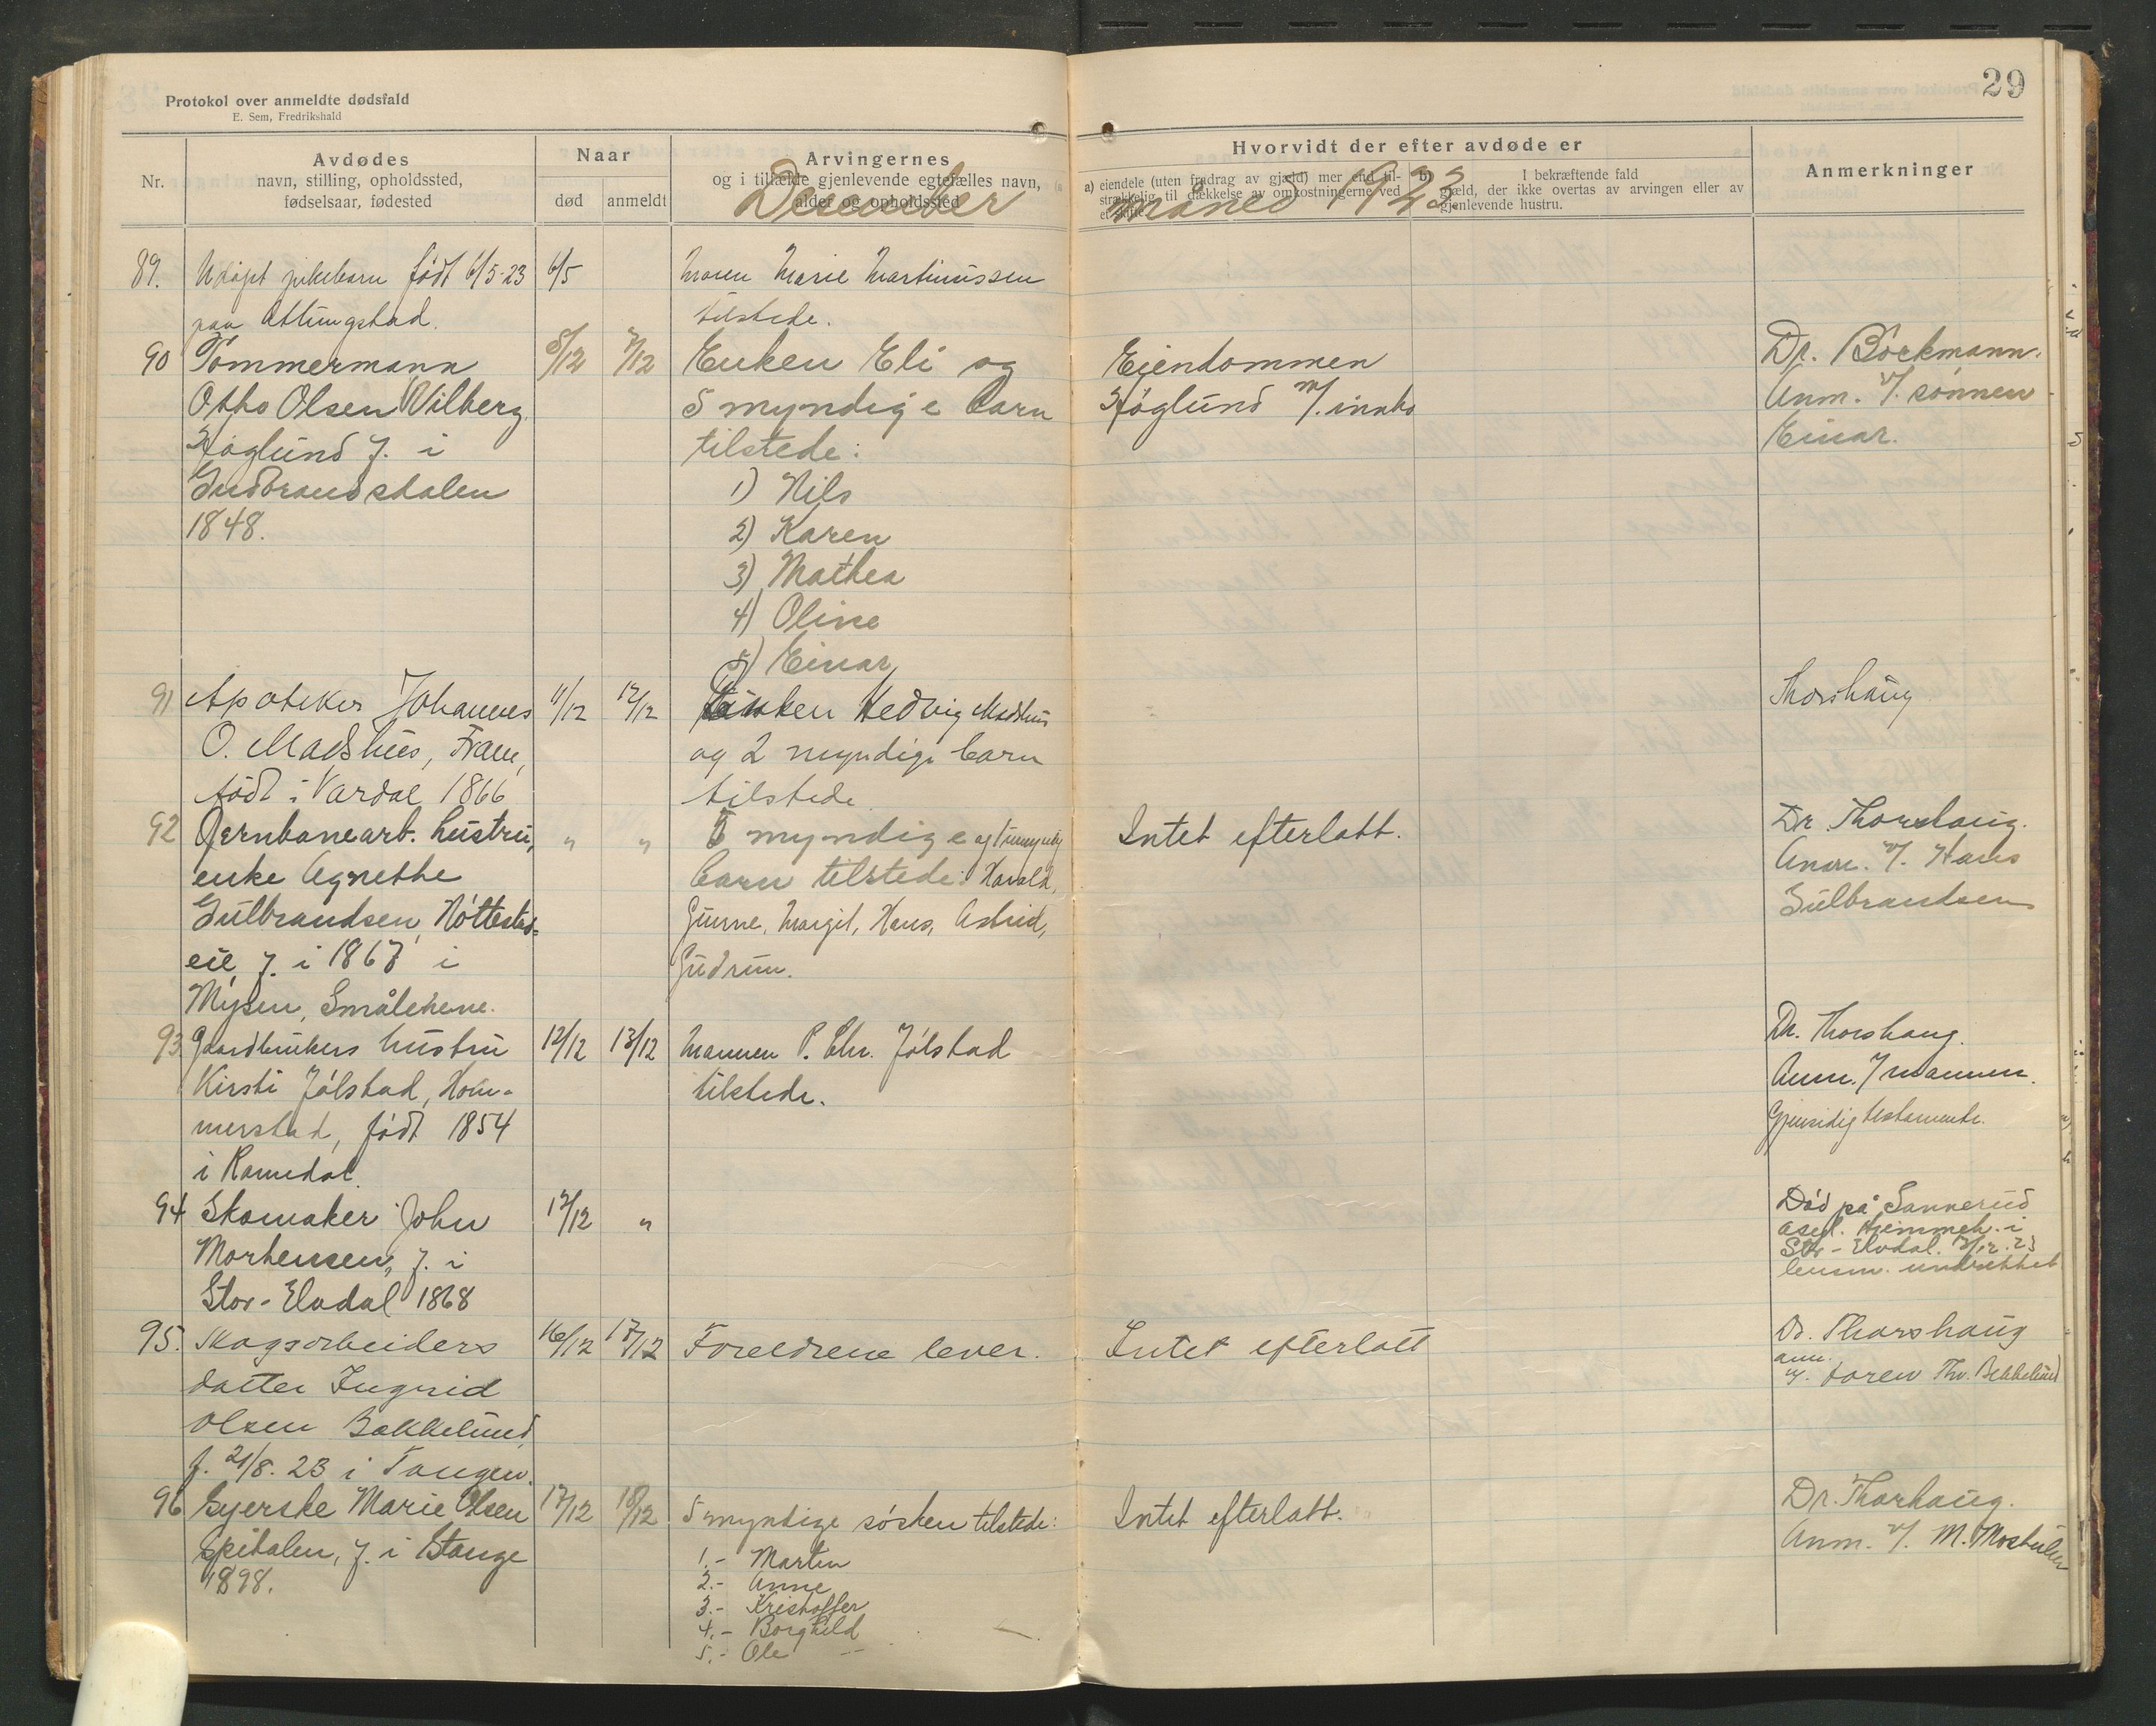 29
Protokol over anmeldte dødsfald
E. Sem, Fredrikshald
Nr.
Avdødes
navn, stilling, opholdssted,
fødselsaar, fødested
Naar
død
anmeldt
Arvingernes
og i tilfælde gjenlevende egtefælles navn,
alder og opholdssted
Hvorvidt der efter avdøde er
a) eiendele (uten fradrag av gjæld) mer end til-
strækkelig til dækkelse av omkostningerne ved
et skifte.
b) I bekræftende fald
gjæld, der ikke overtas av arvingen eller av
gjenlevende hustru.
Anmerkninger
Desember måned 1923.
89. Udøpt pikebarn født 6/5-23
paa Ottungstad.
6/5
Maren Marie Martinussen
tilstede.
90 Tømmermann
Otho Olsen Vilberg,
Høglund f. i
Gudbrandsdalen
1848.
5/12
7/12
Enken Eli og
5 myndige barn
tilstede:
1) Nils
2) Karen
3) Mathea
4) Oline
5) Einar
Eiendommen
Høglund m/. innbo
Dr. Böckmann.
Anm. v/. sønnen
Einar.
91 Apoteker Johannes
O. Madshus, Fram,
født i Vardal 1866
11/12
12/12
Enken Hedvig Madshus
og 2 myndige barn
tilstede
Thorshaug
92 Jernbanearb. hustru,
enke Agnethe
Gulbrandsen, Nøttestad-
eie, f. i 1867 i
Mysen, Smålenene.
"
"
5 myndige og 1 umyndig
barn tilstede: Harald,
Gunne, Margit, Hans, Astrid,
Gudrun.
Intet efterlatt.
Dr. Thorshaug.
Anm. v/. Hans
Gulbrandsen
93 Gaardbrukers hustru
Kirsti Jølstad, Hom-
merstad, født 1854
i Romedal.
12/12
13/12
Mannen P. Chr. Jølstad
tilstede.
Dr. Thorshaug.
Anm. / mannen.
Gjensidig testamente.
94 Skomaker John
Mortensen, f. i
Stor-Elvdal 1868
12/12
"
Død på Sannerud
asyl. Hjemmeh. i
Stor-Elvdal. 13/12.23
lensm. underrettet
95. Skogsarbeiders
datter Ingrid
Olsen Bakkelund,
f. 21/8. 23 i Tangen.
16/12
17/12
Foreldrene lever.
Intet efterlatt
Dr. Thorshaug
anm.
v/. faren Thv. Bekkelund
96 Syerske Marie Olsen
Spitalen, f. i Stange
1898.
17/12
18/12
5 myndige søsken tilstede:
1.- Martin
2.- Anne
3.- Kristoffer
4.- Borghild
5.- Ole
Intet efterlatt.
Dr. Thorhaug.
Anm. v/. M.